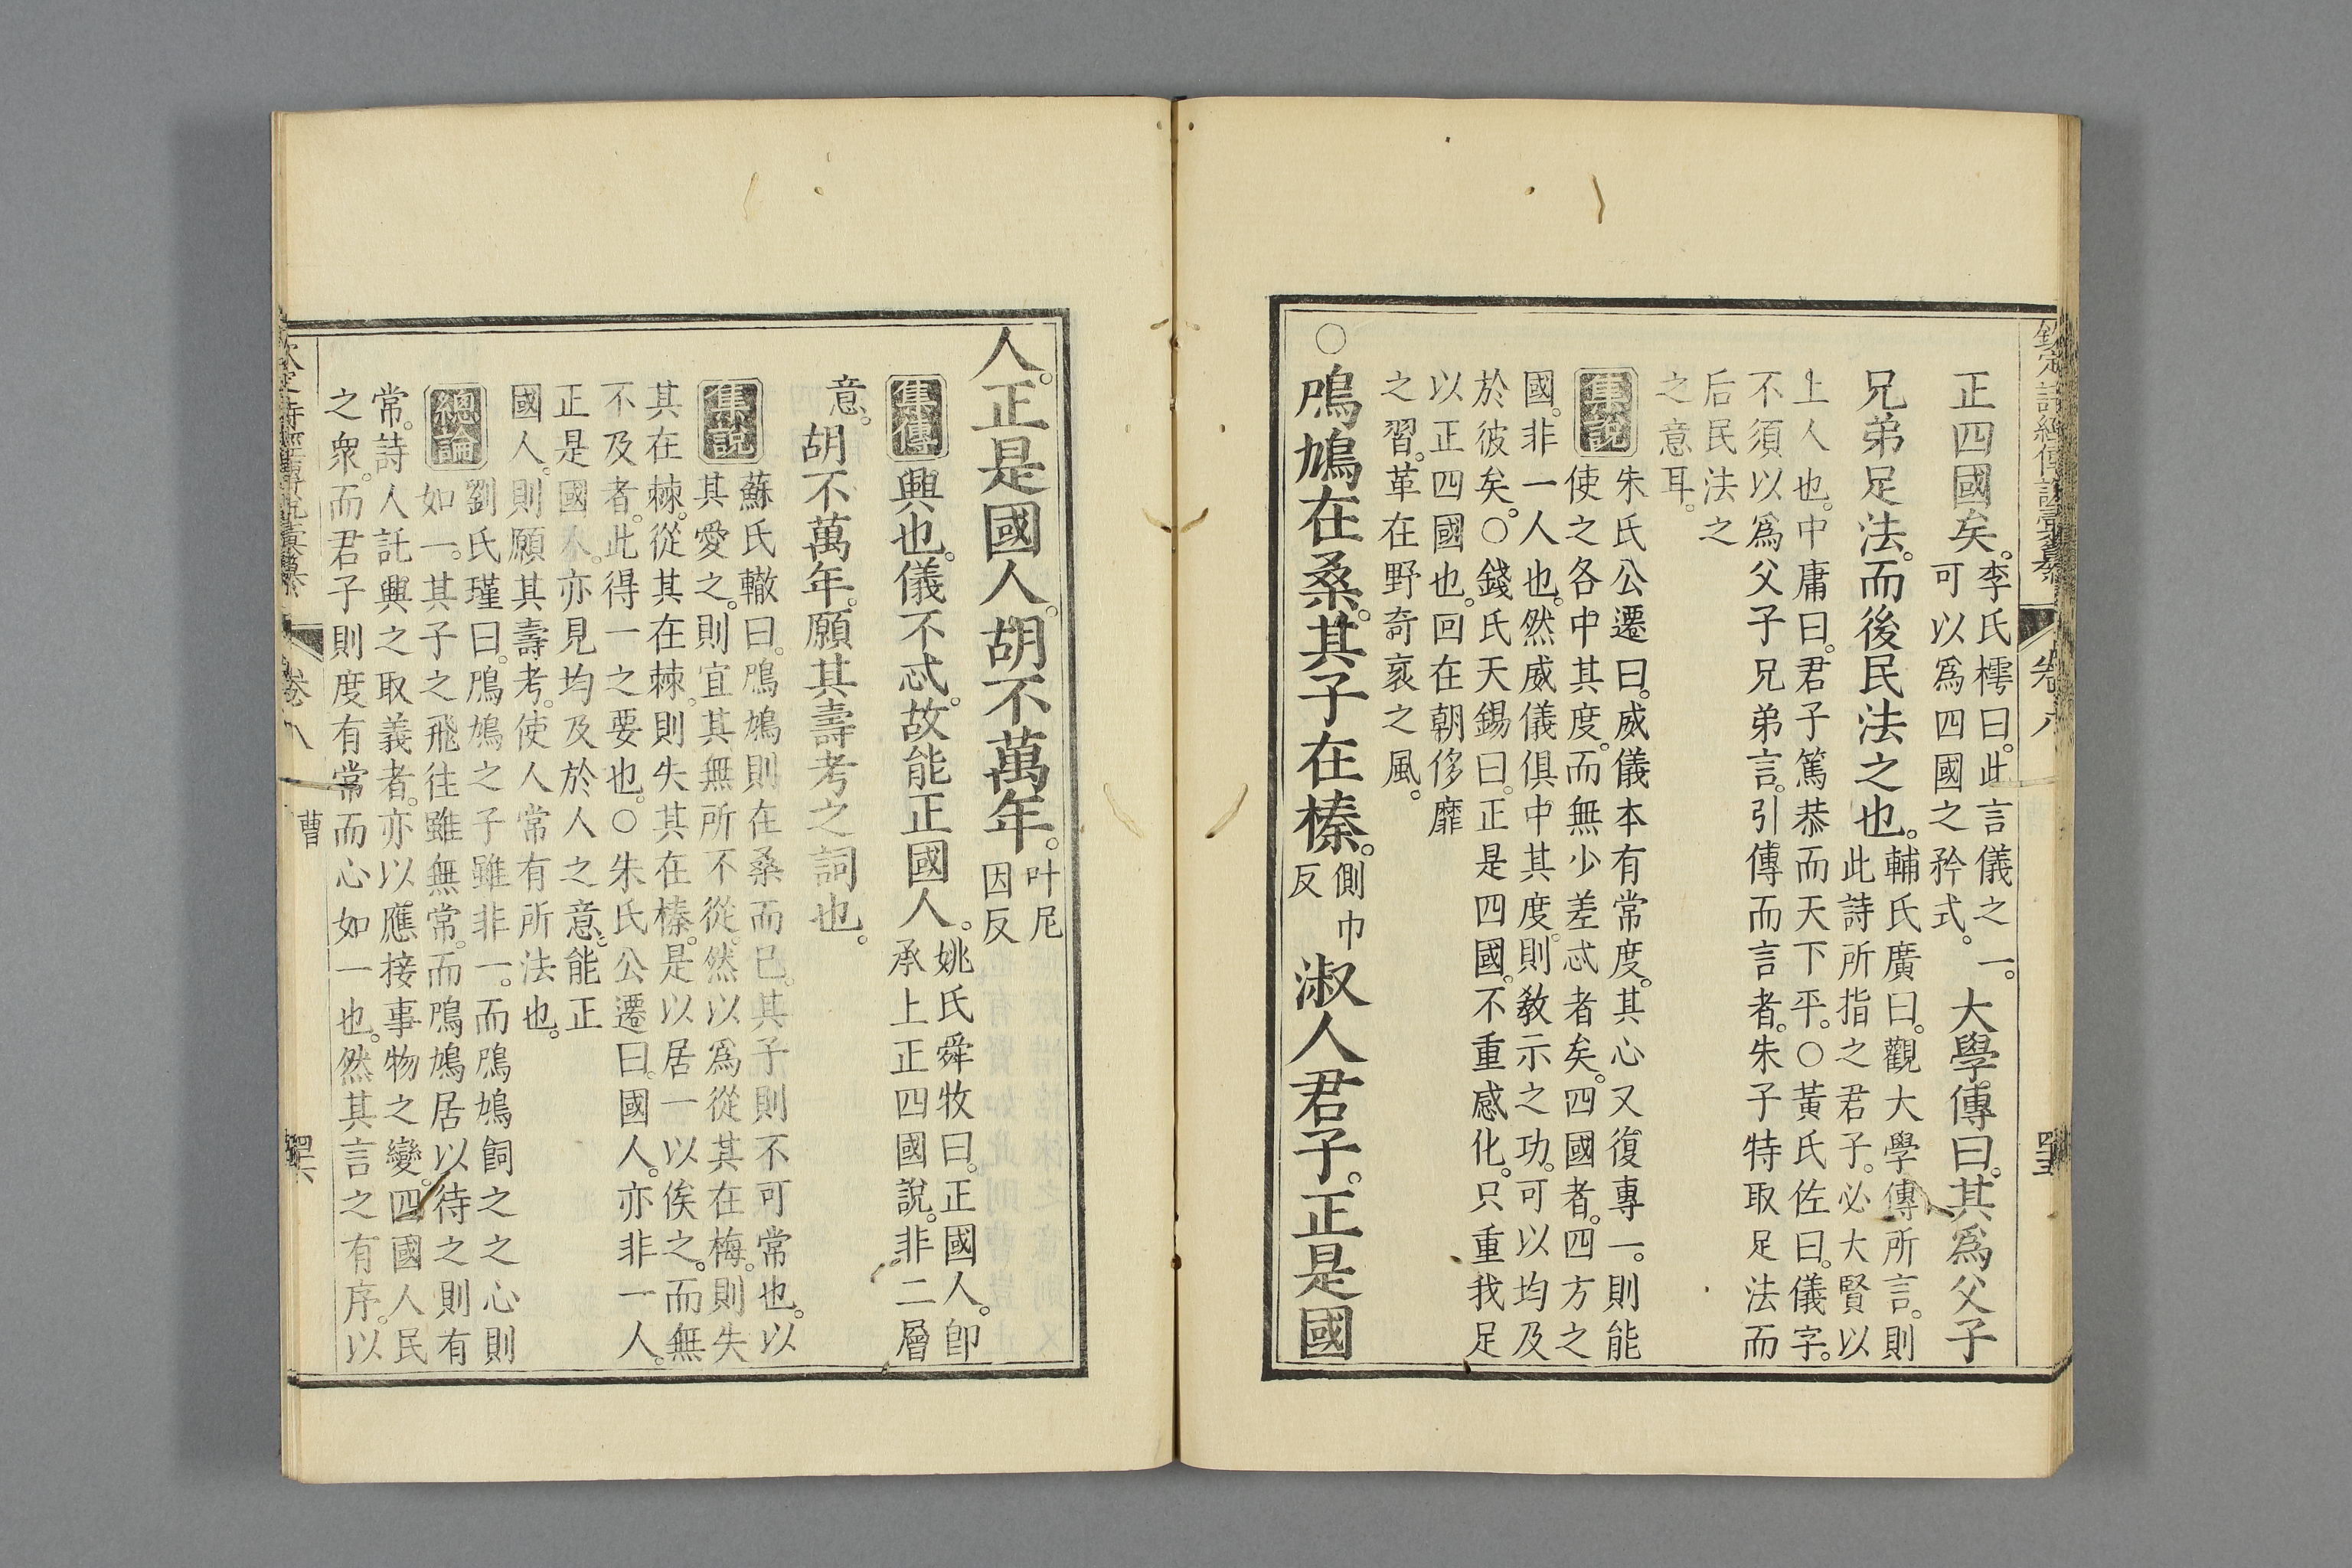 正四國矣。李氏樗曰。此言儀之一。
可以爲四國之矜式。大學傳曰。其爲父子
兄弟足法。而後民法之也。輔氏廣曰。觀大學傳所言。則
此詩所指之君子。必大賢以
上人也。中庸曰。君子篤恭而天下平。○黃氏佐曰。儀字。
不須以爲父子兄弟言。引傳而言者。朱子特取足法而
后民法之
之意耳。
集說
朱氏公遷曰。威儀本有常度。其心又復專一。則能
使之各中其度。而無少差忒者矣。四國者。四方之
國。非一人也。然威儀俱中其度。則敎示之功。可以均及
於彼矣。○錢氏天錫曰。正是四國。不重感化。只重我足
以正四國也。回在朝侈靡
之習。革在野奇衺之風。
○鳲鳩在桑。其子在榛。側巾
反
淑人君子。正是國
人。正是國人。胡不萬年。叶尼
因反
集傳
興也。儀不忒。故能正國人。姚氏舜牧曰。正國人。卽
承上正四國說。非二層
意。
胡不萬年。願其壽考之詞也。
集說
蘇氏轍曰。鳲鳩則在桑而已。其子則不可常也。以
其愛之。則宜其無所不從。然以爲從其在梅。則失
其在棘。從其在棘。則失其在榛。是以居一以俟之。而無
不及者。此得一之要也。○朱氏公遷曰。國人。亦非一人。
正是國人。亦見均及於人之意。能正
國人。則願其壽考。使人常有所法也。
總論
劉氏瑾曰。鳲鳩之子雖非一。而鳲鳩飼之之心則
如一。其子之飛往雖無常。而鳲鳩居以待之則有
常。詩人託興之取義者。亦以應接事物之變。四國人民
之衆。而君子則度有常而心如一也。然其言之有序。以
卷八
曹